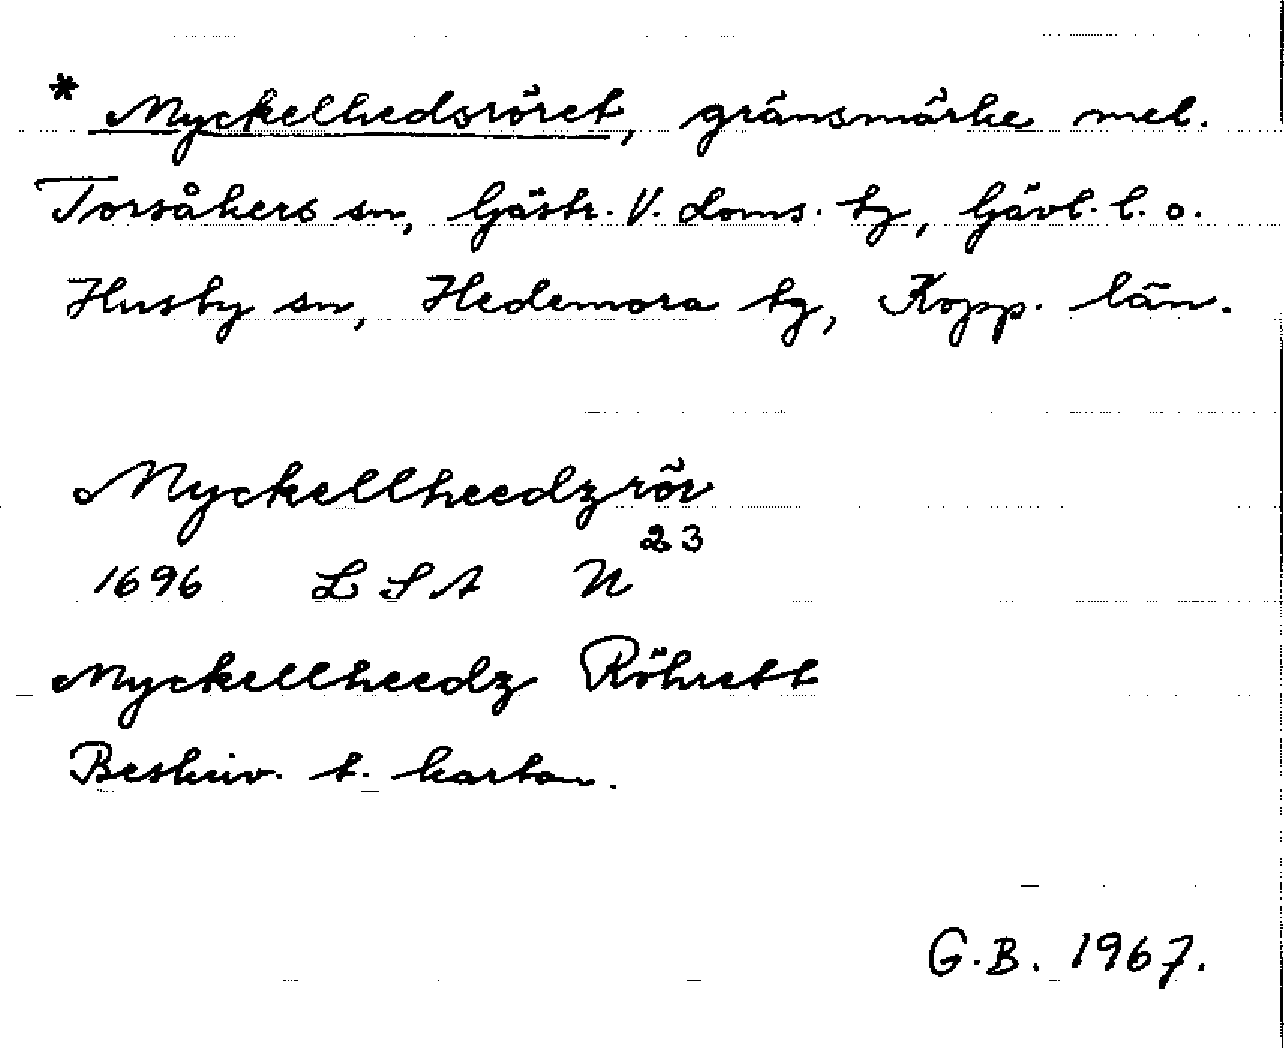 * Myckelhedsröret, gränsmärke mel.
Torsåkers sn, Gästr. V. doms. tg, Gävl. l. o.
Husby sn, Hedemora tg, Kopp. län.
Myckellheedzrör
1696 LSA U 23
Myckellheedz Röhrett
Beskriv. t. kartan.
G.B. 1967.